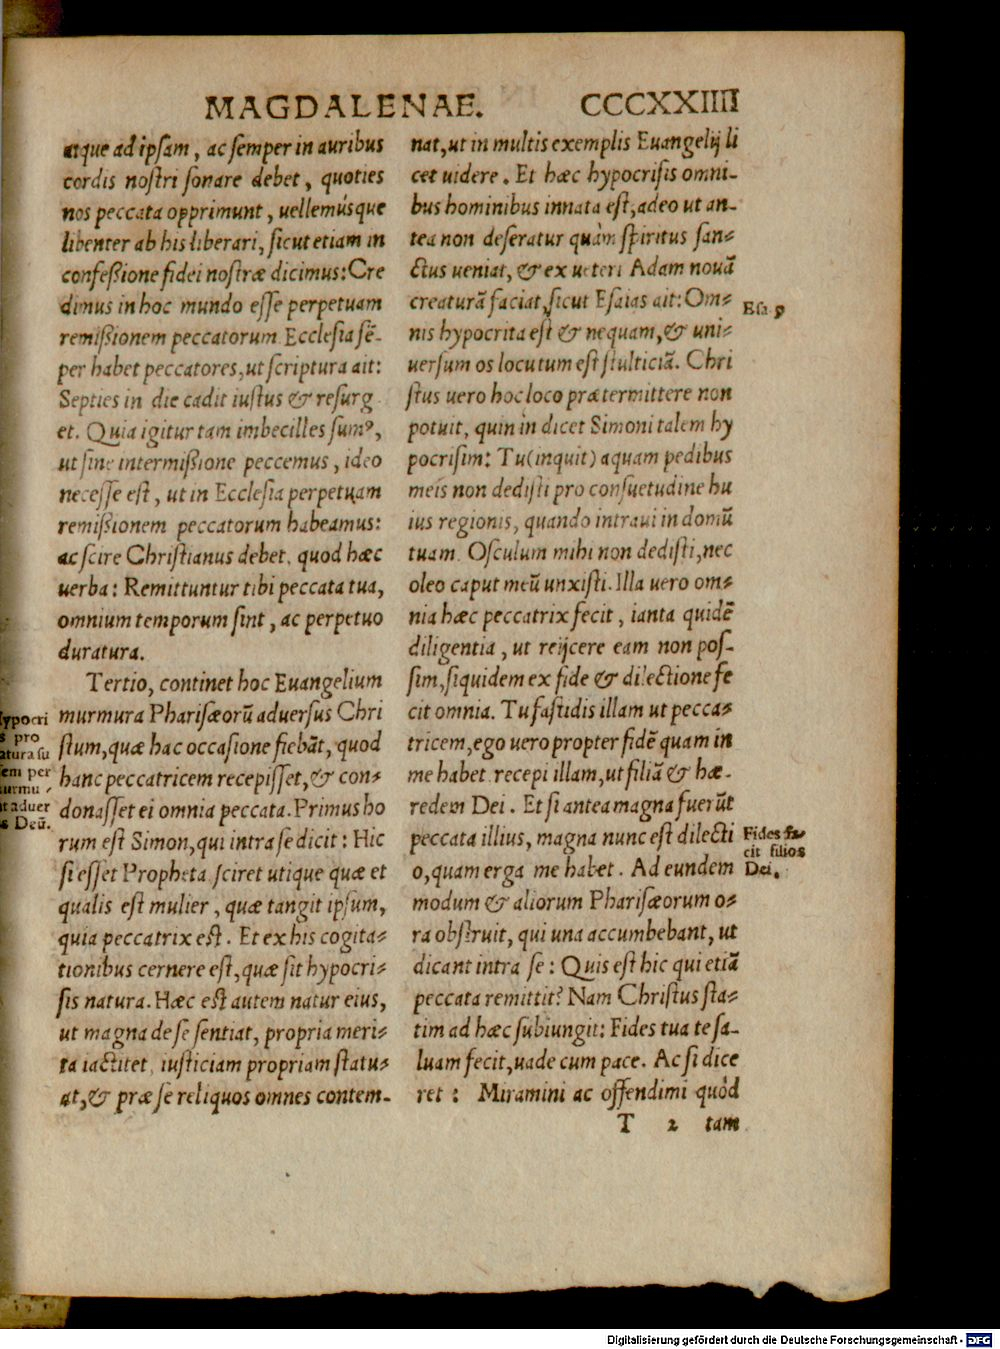 MAGDALENAE. CCCXXIIII
atque ad ipſam, ac ſemper in auribus
cordis noſtri ſonare debet, quoties
nos peccata opprimunt, uellemúsque
libenter ab his liberari, ſicut etiam in
confeßione fidei noſtræ dicimus: Cre
dimus in hoc mundo eſſe perpetuam
remißionem peccatorum Eccleſia sē-
per habet peccatores, ut ſcriptura ait:
Septies in die cadit iuſtus & reſurg
et. Quia igitur tam imbecilles ſumꝰ,
ut ſine intermißione peccemus, ideo
neceſſe eſt, ut in Eccleſia perpetuam
remißionem peccatorum habeamus:
ac ſcire Chriſtianus debet, quod hæc
uerba: Remittuntur tibi peccata tua,
omnium temporum ſint, ac perpetuo
duratura.
Tertio, continet hoc Euangelium
murmura Phariſæorū aduerſus Chri
ſtum, quæ hac occaſione fiebāt, quod
hanc peccatricem recepiſſet, & con-
donaſſet ei omnia peccata. Primus ho
rum eſt Simon, qui intra ſe dicit: Hic
ſi eſſet Propheta ſciret utique quæ et
qualis eſt mulier, quæ tangit ipſum,
quia peccatrix eſt. Et ex his cogita-
tionibus cernere eſt, quæ ſit hypocri-
ſis natura. Hæc eſt autem natur eius,
ut magna de ſe ſentiat, propria meri-
ta iactitet, iuſticiam propriam ſtatu-
at, & præ ſe reliquos omnes contem-
ypocri
s pro
atura ſu
em per
urmu-
t aduer
s Deū.
nat, ut in multis exemplis Euangelij li
cet uidere. Et hæc hypocriſis omni-
bus hominibus innata eſt, adeo ut an-
tea non deſeratur quàm ſpiritus ſan-
ctus ueniat, & ex ueteri Adam nouā
creaturā faciat, ſicut Eſaias ait: Om-
nis hypocrita eſt & nequam, & uni-
uerſum os locutum eſt ſtulticiā. Chri
ſtus uero hoc loco prætermittere non
potuit, quin in dicet Simoni talem hy
pocriſim: Tu (inquit) aquam pedibus
meis non dediſti pro conſuetudine hu
ius regionis, quando intraui in domū
tuam. Oſculum mihi non dediſti, nec
oleo caput meū unxiſti. Illa uero om-
nia hæc peccatrix fecit, ianta quidē
diligentia, ut reijcere eam non poſ-
ſim, ſiquidem ex fide & dilectione fe
cit omnia. Tu faſtidis illam ut pecca-
tricem, ego uero propter fidē quam in
me habet recepi illam, ut filiā & hæ-
redem Dei. Et ſi antea magna fuerūt
peccata illius, magna nunc eſt dilecti
o, quam erga me habet. Ad eundem
modum & aliorum Phariſæorum o-
ra obſtruit, qui una accumbebant, ut
dicant intra ſe: Quis eſt hic qui etiā
peccata remittit? Nam Chriſtus ſta-
tim ad hæc ſubiungit: Fides tua te ſa-
luam fecit, uade cum pace. Ac ſi dice
ret: Miramini ac offendimi quòd
Eſa. 9
Fides fa-
cit filios
Dei.
T 2 tam
Digitalisierung gefördert durch die Deutsche Forschungsgemeinschaft - DFG